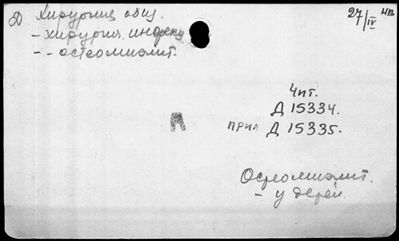 Хирургия общ. 27/IV
- хирургич. инфекц
- - остеомиэлит.
Чит.
Д 15334.
прил Д 15335.
Л
Остеомиэлит.
- у детей.